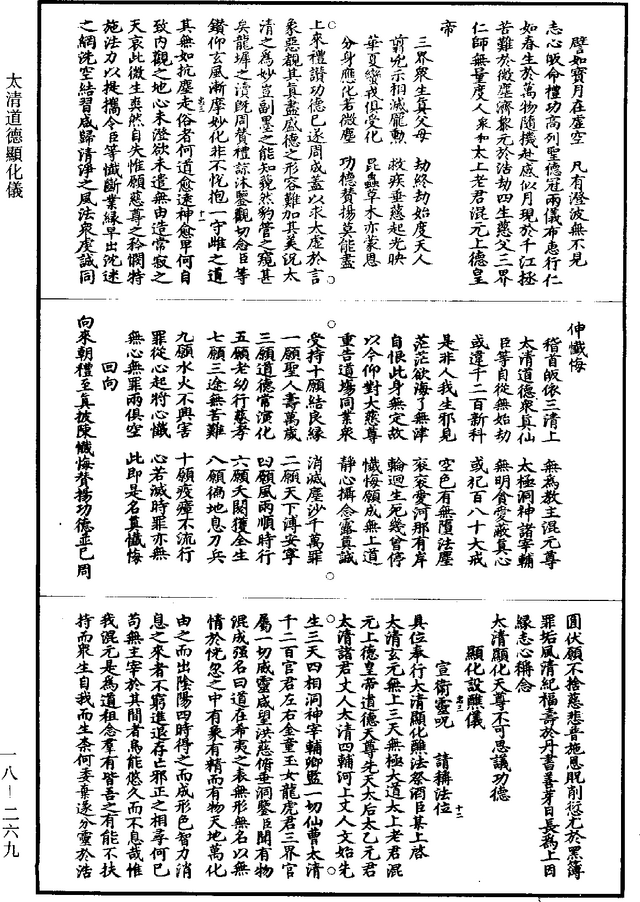 譬如寶月在虛空　凡有澄波無不見
志心皈命禮功高列聖德冠兩儀布惠行仁
如春生於萬物隨機赴感似月現於千江拯
苦難於微塵濟黎元於浩劫四生慈父三界
仁師無量度人衆和太上老君混元上德皇
帝
三界衆生真父母　劫終劫始度天人
前光示相滅龐勳　救疾垂慈起光映
華夏蠻戎俱受化　昆蟲草木亦蒙恩
分身應化若微塵　功德贊揚莫能盡
上來禮讚功德已遂周成蓋以求太虛於言
象惡覩其真盡盛德之形容難加其美況太
清之爲妙豈副墨之能知藐然豹管之窺甚
矣龍墀之瀆既周贊禮諒沐鑒觀切念臣等
鑽仰玄風漸摩妙化非不恍抱一守雌之道
其無如抗塵走俗者何道愈遠神愈卑何自
致內觀之地心未澄欲未遣無由造常寂之
天哀此微生爽然自失惟願慈尊之矜憫特
施法力以提攜令臣等懺斷業緣早出沈迷
之網洗空結習咸歸清淨之風法衆虔誠同
伸懺悔
稽首皈依三清上　無爲教主混元尊
太清道德衆真仙　太極洞神諸宰輔
臣等自從無始劫　無明貪愛蔽真心
或違千二百新科　或犯百八十大戒
是非人我生邪見　空色有無隨法塵
茫茫欲海了無津　滾滾愛河那有岸
自恨此身無定故　輪迴生死幾曾停
以今仰對大慈尊　懺悔願成無上道
重告道場同業衆　靜心攝念露真誠
受持十願結良緣　消滅塵沙千萬罪
一願聖人壽萬歲　二願天下溥安寧
三願道德常演化　四願風雨順時行
五願老幼行慈孝　六願夭閼獲全生
七願三途無苦難　八願徧地息刀兵
九願水火不興害　十願疫瘴不流行
罪從心起將心懺　心若滅時罪亦無
無心無罪兩俱空　此即是名真懺悔
回向
向來朝禮至真披陳懺悔贊揚功德並已周
圓伏願不捨慈悲普施恩貺削愆尤於黑簿
罪垢風清紀福壽於丹書善芽日長爲上因
緣志心稱念
太清顯化天尊不可思議功德
顯化設醮儀
宣衛靈呪　請稱法位
具位奉行太清顯化醮法祭酒臣某上啓
太清玄元無上三天無極大道太上老君混
元上德皇帝道德天尊先天太后太乙元君
太清諸君丈人太清四輔河上丈人文始先
生三天四相洞神宰輔卿監一切仙曹太清
千二百官君左右金童玉女龍虎君三界官
屬一切威靈咸望洪慈俯垂洞鑒臣聞有物
混成強名曰道在希夷之表無形無名以無
情於恍忽之中有象有精而有物天地萬化
由之而出陰陽四時得之而成形色智力消
息之來者不窮進退存亡邪正之相尋何已
苟無主宰於其間者烏能悠久而不息哉惟
我混元是爲道祖念羣有皆吾之有能不扶
持而衆生自我而生柰何委棄遂分靈於浩
太清道德顯化儀
一八—二六九